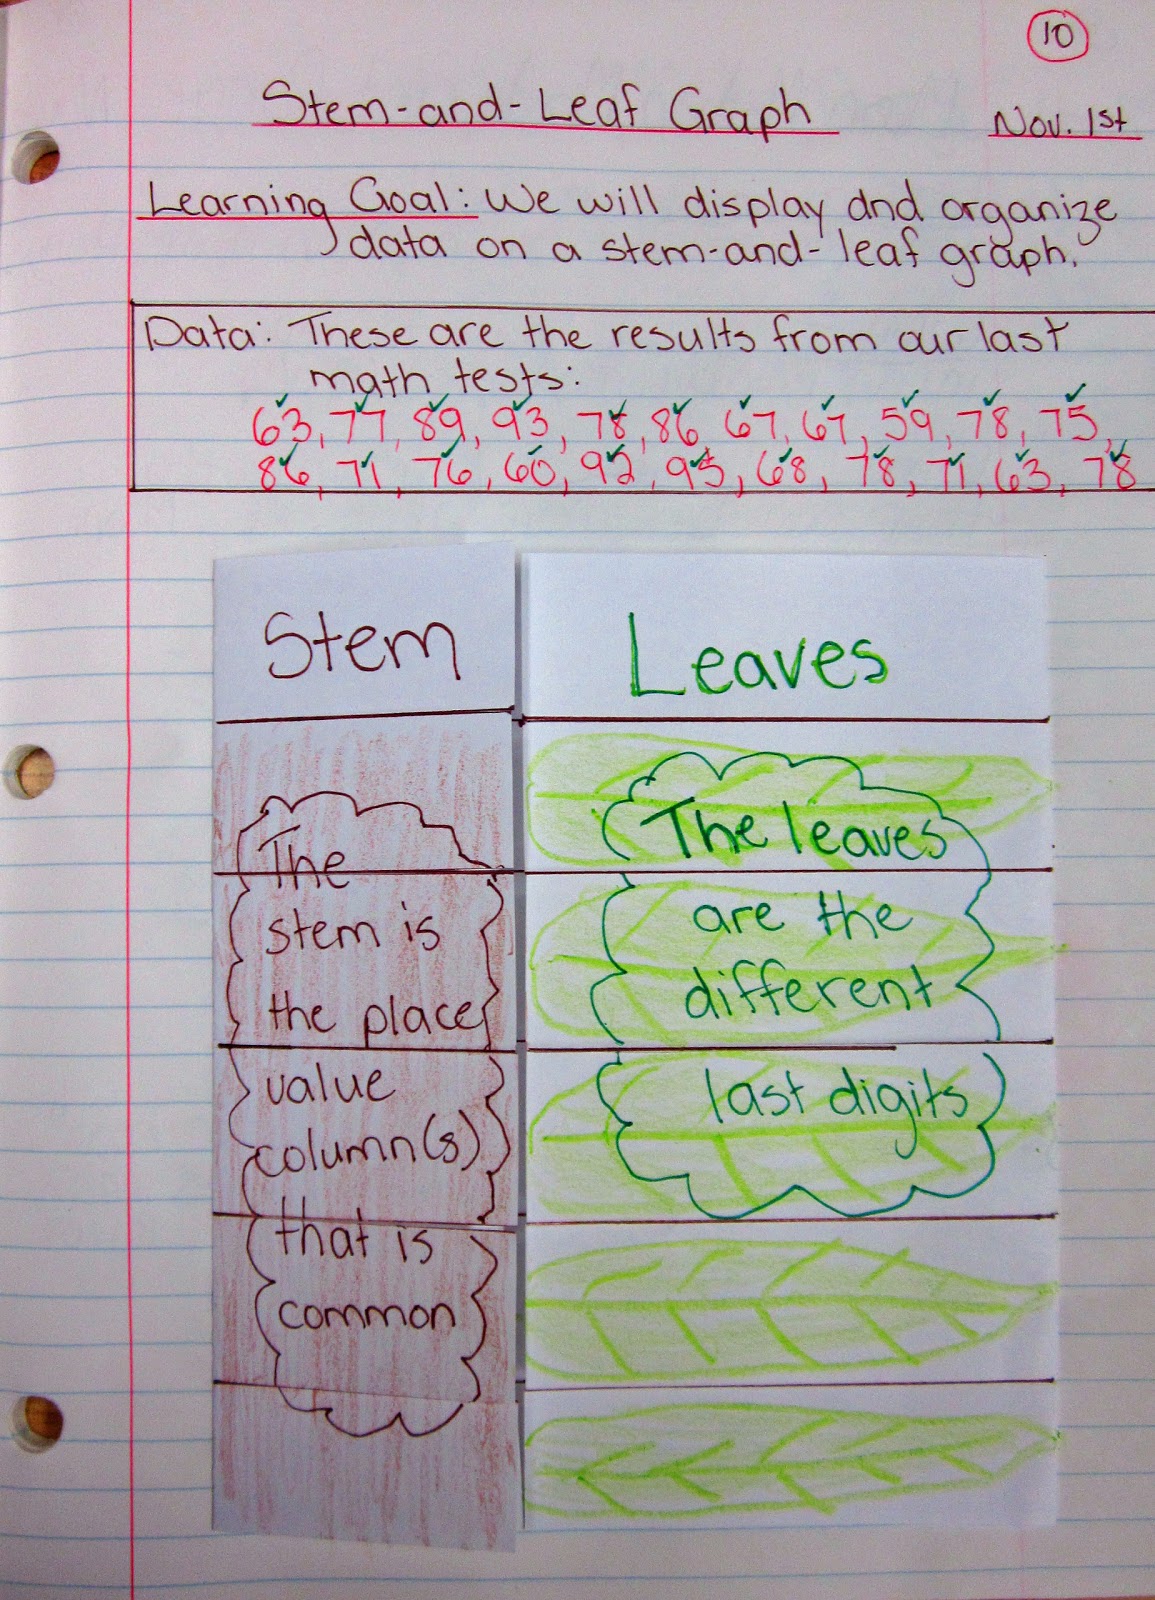 10
Stem-and-Leaf Graph
Nov. 1st
Learning Goal: We will display and organize
data on a stem-and-leaf graph.
Data: These are the results from our last
math tests:
63, 77, 89, 93, 78, 86, 67, 67, 59, 78, 75,
86, 71, 76, 60, 92, 95, 68, 78, 71, 63, 78
Stem
Leaves
The
stem is
the place
value
column(s)
that is
common
The leaves
are the
different
last digits